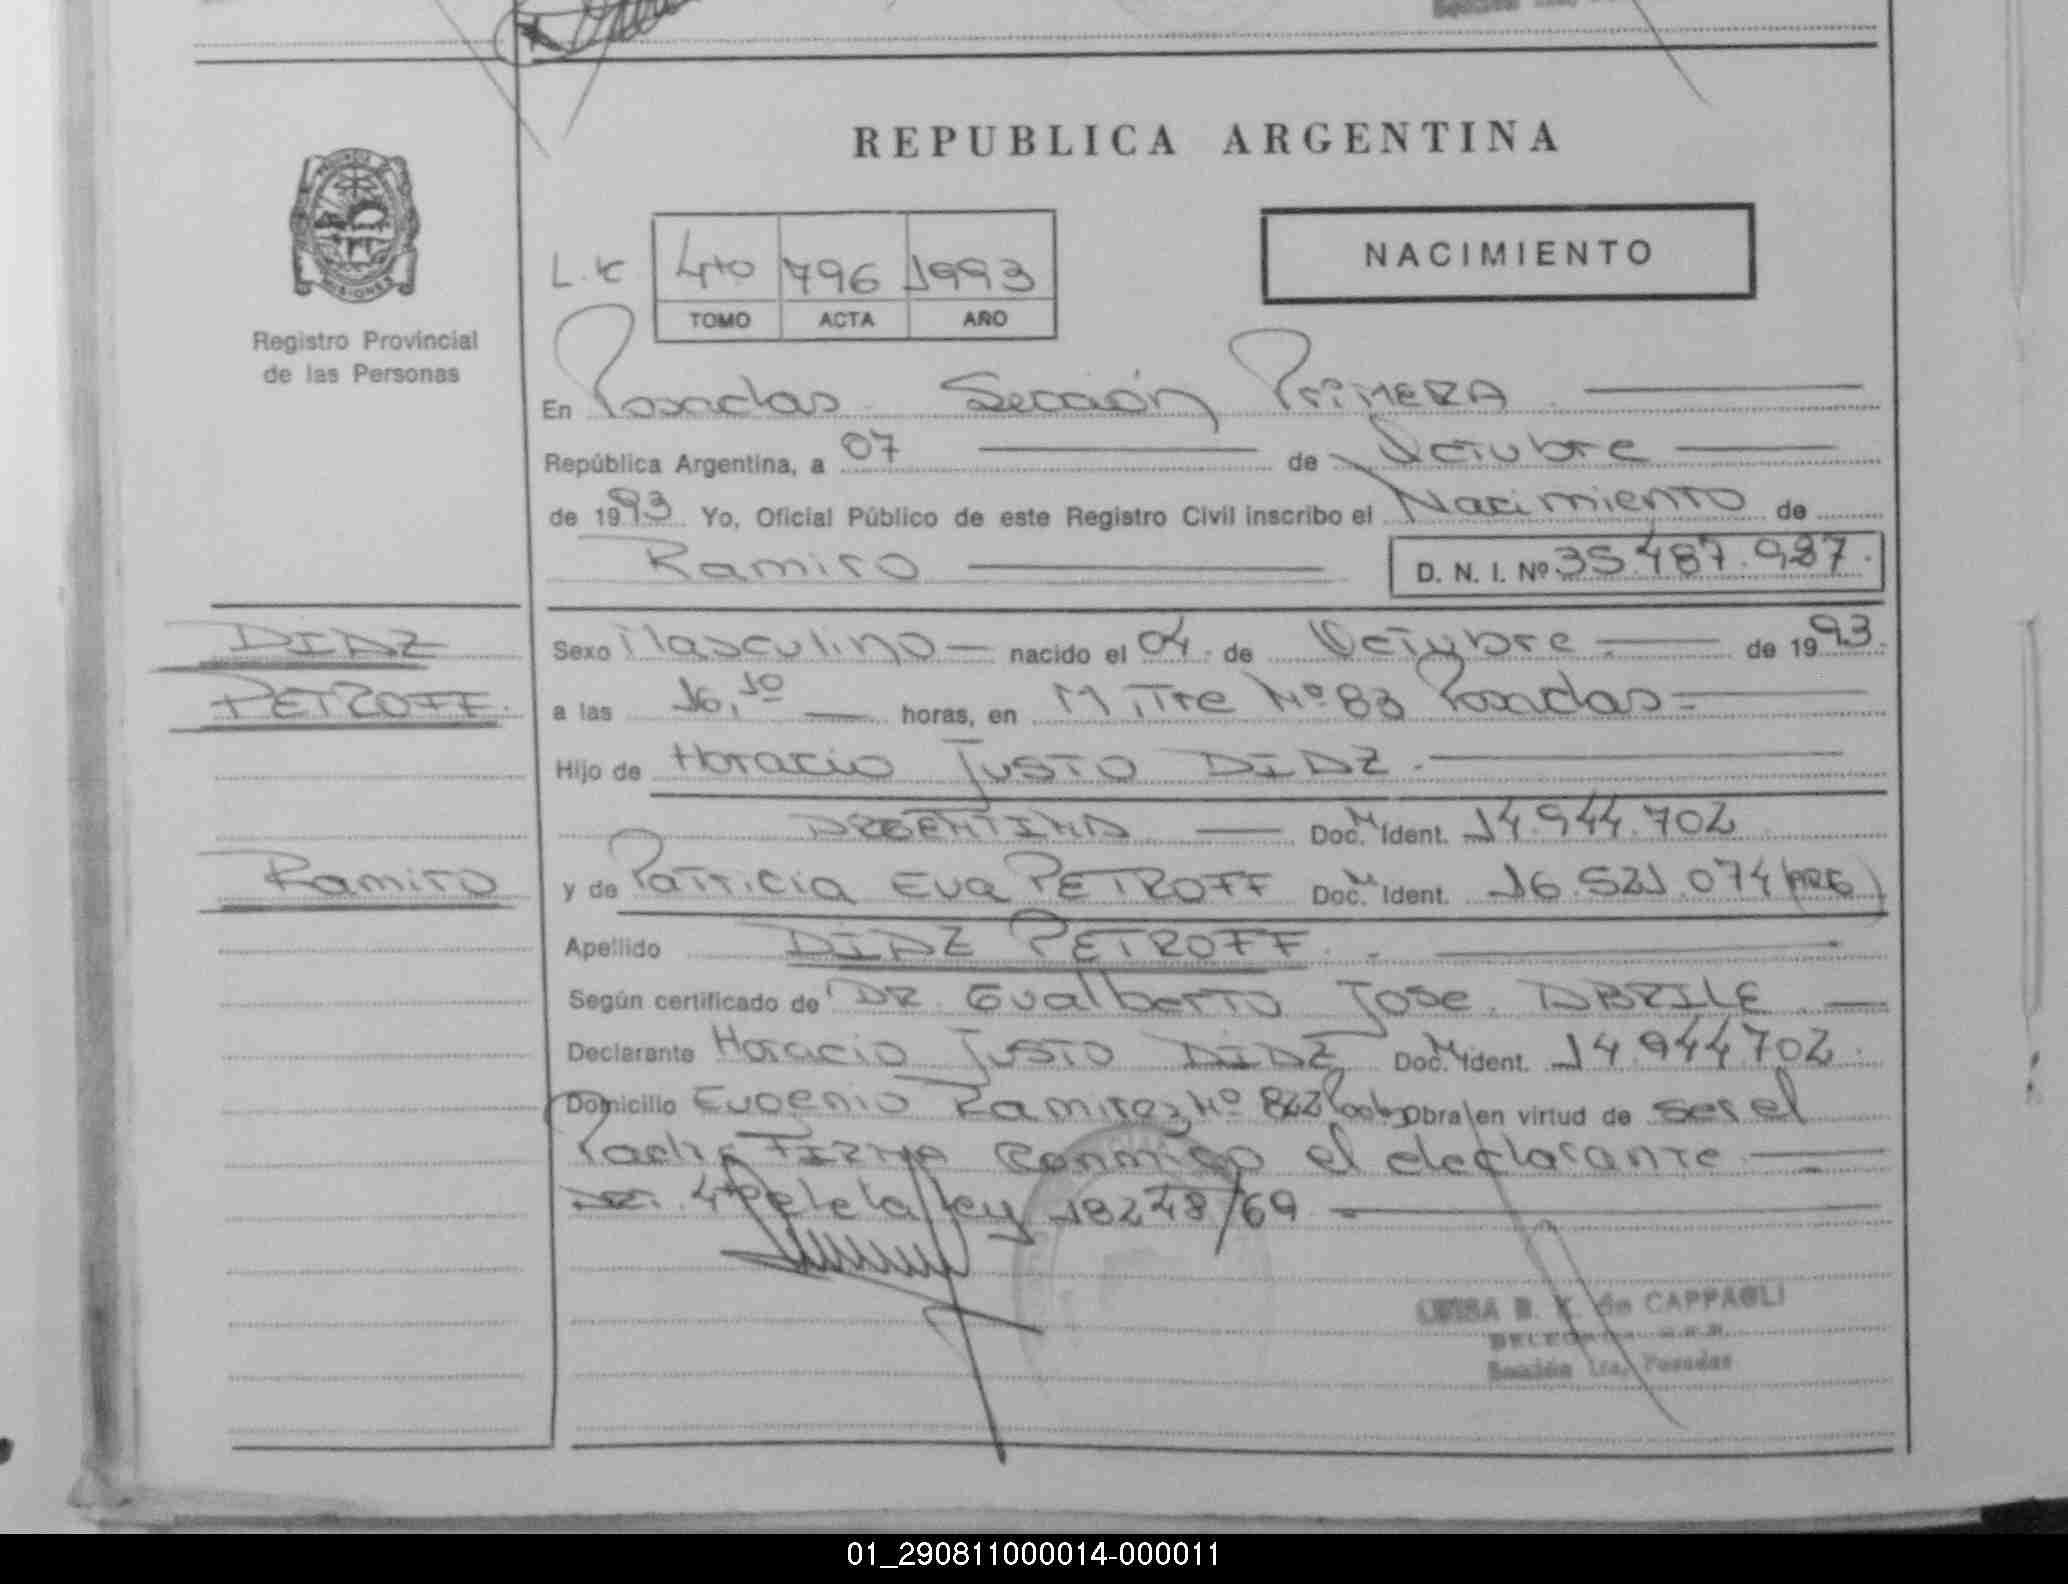 REPUBLICA ARGENTINA
NACIMIENTO
PROVINCIA DE MISIONES
Registro Provincial
de las Personas
4to 796 1993
TOMO ACTA AÑO
En Posadas Sección PriMERA
República Argentina, a 07 de Octubre
de 1993 Yo, Oficial Público de este Registro Civil inscribo el Nacimiento de
Ramiro D. N. I. Nº 35.487.987.
DIAZ
PETROFF.
Ramiro
Sexo Masculino nacido el 04 de Octubre de 1993.
a las 16,10 horas, en Mitre Nº 83 Posadas
Hijo de Horacio Justo DIAZ.
ARGENTINA Doc. M. Ident. 14.944.702
y de Patricia Eva PETROFF Doc. M. Ident. 16.521.074 (ARG)
Apellido DIAZ PETROFF.
Según certificado de DR. Gualberto Jose ABRILE
Declarante Horacio Justo DIAZ Doc. M. Ident. 14.944.702
Domicilio Eugenio Ramirez Nº 822 Obra en virtud de ser el
Padre FIRMA conmigo el declarante
ART. 4to de la ley 18248/69
LUISA B. K. de CAPPAGLI
Sección 1ra, Posadas
01_290811000014-000011